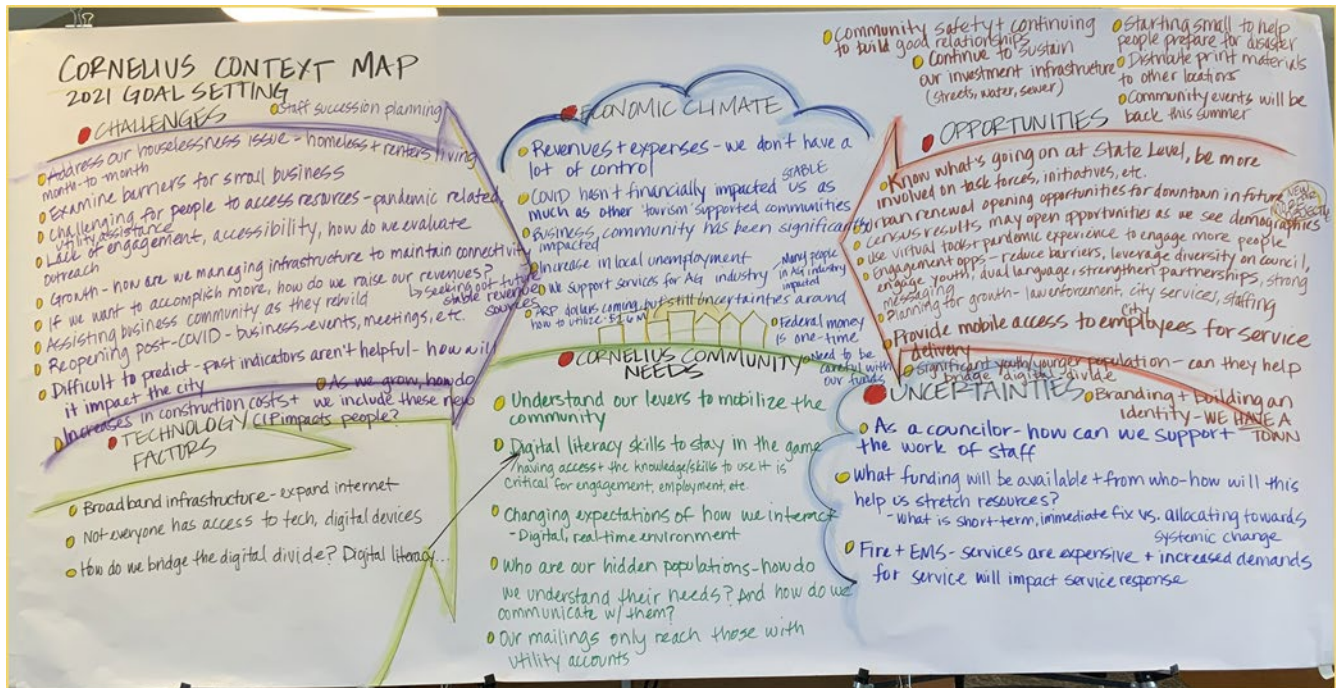 CORNELIUS CONTEXT MAP
2021 GOAL SETTING
Staff succession planning
CHALLENGES
Address our houselessness issue - homeless + renters living
month-to-month
Examine barriers for small business
Challenging for people to access resources - pandemic related,
utility assistance
Lack of engagement, accessibility, how do we evaluate
outreach
Growth - how are we managing infrastructure to maintain connectivity
If we want to accomplish more, how do we raise our revenues?
Seeking out future
stable revenue
sources
Assisting business community as they rebuild
Reopening post-COVID - business-events, meetings, etc.
Difficult to predict - past indicators aren't helpful - how will
it impact the city
As we grow, how do
we include these new
people?
Increases in construction costs +
CIP impacts
TECHNOLOGY
FACTORS
Broadband infrastructure - expand internet
Not everyone has access to tech, digital devices
How do we bridge the digital divide? Digital literacy...
ECONOMIC CLIMATE
Revenues + expenses - we don't have a
lot of control
STABLE
COVID hasn't financially impacted us as
much as other 'tourism' supported communities
Business community has been significantly
impacted
Increase in local unemployment
We support services for AG industry
Many people
in AG industry
impacted
ARP dollars coming, but still uncertainties around
how to utilize
Federal money
is one-time
Need to be
careful with
our funds
CORNELIUS COMMUNITY
NEEDS
Understand our levers to mobilize the
community
Digital literacy skills to stay in the game
having access + the knowledge/skills to use it is
critical for engagement, employment, etc
Changing expectations of how we interact
- Digital, real-time environment
Who are our hidden populations - how do
we understand their needs? And how do we
communicate w/ them?
Our mailings only reach those with
utility accounts
Community safety + continuing
to build good relationships
Continue to sustain
our investment infrastructure
(streets, water, sewer)
Starting small to help
people prepare for disaster
Distribute print materials
to other locations
Community events will be
back this summer
OPPORTUNITIES
Know what's going on at State Level, be more
involved on task forces, initiatives, etc.
Urban renewal opening opportunities for downtown in future
NEW
Census results may open opportunities as we see demographics
Use virtual tools + pandemic experience to engage more people
Engagement opps - reduce barriers, leverage diversity on council,
engage youth, dual language, strengthen partnerships, strong
messaging
Planning for growth - law enforcement, city services, staffing
Provide mobile access to city employees for service
delivery
Significant youth/younger population - can they help
bridge digital divide
Branding + building an
identity - WE HAVE A
TOWN
UNCERTAINTIES
As a councilor - how can we support
the work of staff
What funding will be available + from who - how will this
help us stretch resources?
- What is short-term, immediate fix vs. allocating towards
systemic change
Fire + EMS - services are expensive + increased demands
for service will impact service response